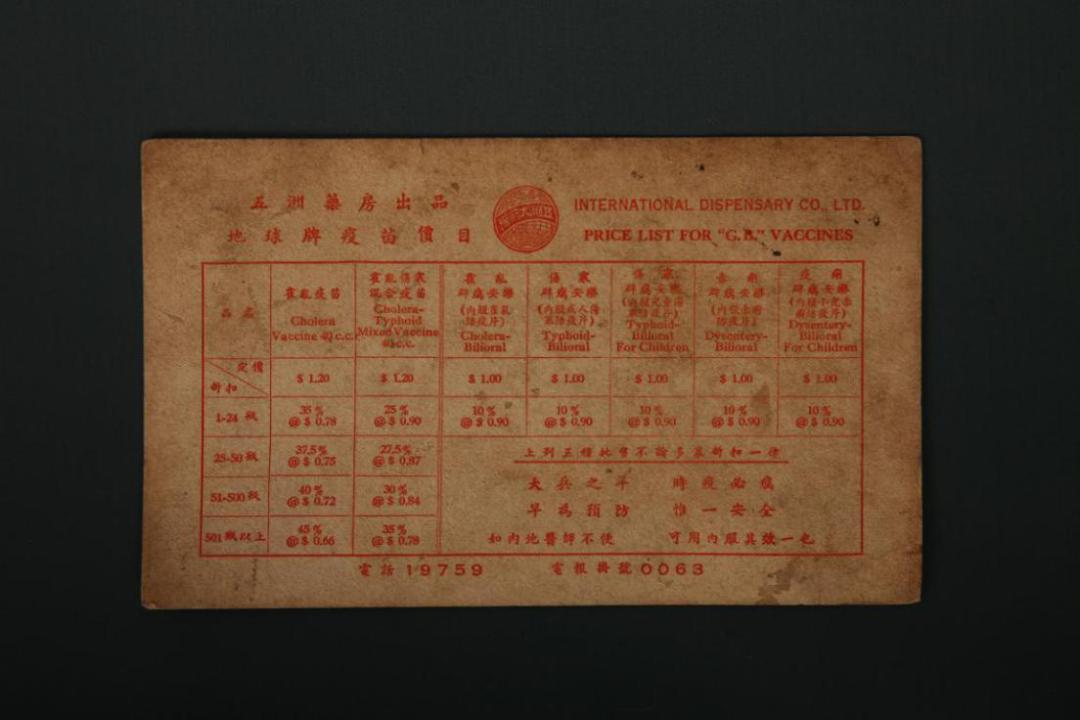 五洲藥房出品
地球牌疫苗價目
INTERNATIONAL DISPENSARY CO., LTD.
PRICE LIST FOR "G.B." VACCINES
品名
霍亂疫苗
Cholera
Vaccine 40 c.c.
霍亂傷寒
混合疫苗
Cholera-
Typhoid
Mixed Vaccine
40 c.c.
霍亂
碎癘安藥
(內服霍亂
防疫片)
Cholera-
Bilioral
傷寒
碎癘安藥
(內服成人傷
寒防疫片)
Typhoid-
Bilioral
傷寒
碎癘安藥
(內服兒童傷
寒防疫片)
Typhoid-
Bilioral
For Children
赤痢
碎癘安藥
(內服赤痢
防疫片)
Dysentery-
Bilioral
疫痢
碎癘安藥
Dysentery-
Bilioral
For Children
定價
折扣
$ 1.20
$ 1.20
$ 1.00
$ 1.00
$ 1.00
$ 1.00
$ 1.00
1-24 瓶
35 %
@ $ 0.78
25 %
@ $ 0.90
10 %
@ $ 0.90
10 %
@ $ 0.90
10 %
@ $ 0.90
10 %
@ $ 0.90
10 %
@ $ 0.90
25-50 瓶
37.5 %
@ $ 0.75
27.5 %
@ $ 0.87
51-500 瓶
40 %
@ $ 0.72
30 %
@ $ 0.84
501 瓶以上
45 %
@ $ 0.66
35 %
@ $ 0.78
上列五種批售不論多寡折扣一律
大兵之年 時疫必癘
早為預防 惟一安全
如內地醫師不便 可用內服其效一也
電話 19759 電報掛號 0063